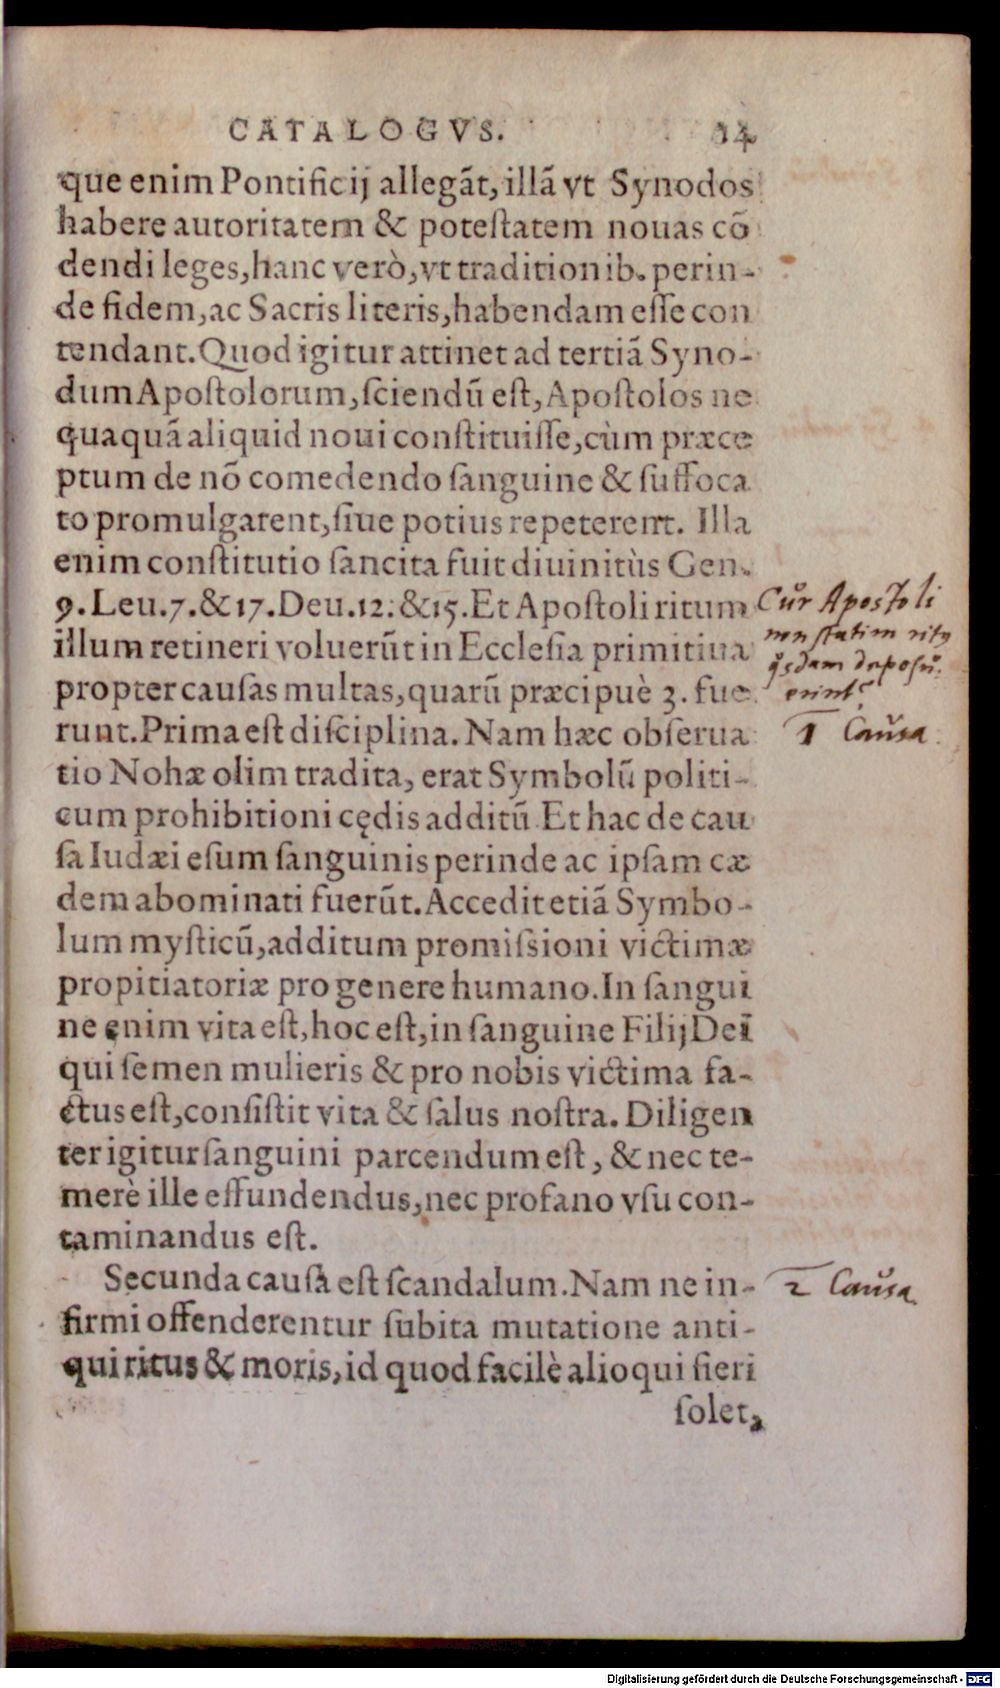 CATALOGVS. 14
que enim Pontificij allegãt, illã vt Synodos
habere autoritatem & poteſtatem nouas cõ
dendi leges, hanc verò, vt traditionib. perin-
de fidem, ac Sacris literis, habendam eſſe con
tendant. Quod igitur attinet ad tertiã Syno-
dum Apoſtolorum, ſciendũ eſt, Apoſtolos ne
quaquã aliquid noui conſtituiſſe, cùm præce
ptum de nõ comedendo ſanguine & ſuffoca
to promulgarent, ſiue potius repeterent. Illa
enim conſtitutio ſancita fuit diuinitùs Gen.
9. Leu. 7. & 17. Deu. 12. & 15. Et Apoſtoli ritum
illum retineri voluerũt in Eccleſia primitiua
propter cauſas multas, quarũ præcipuè 3. fue
runt. Prima eſt diſciplina. Nam hæc obſerua
tio Nohæ olim tradita, erat Symbolũ politi-
cum prohibitioni cędis additũ. Et hac de cau
ſa Iudæi eſum ſanguinis perinde ac ipſam cæ
dem abominati fuerũt. Accedit etiã Symbo-
lum myſticũ, additum promiſsioni victimæ
propitiatoriæ pro genere humano. In ſangui
ne enim vita eſt, hoc eſt, in ſanguine Filij Dei
qui ſemen mulieris & pro nobis victima fa-
ctus eſt, conſiſtit vita & ſalus noſtra. Diligen
ter igitur ſanguini parcendum eſt, & nec te-
merè ille effundendus, nec profano vſu con-
taminandus eſt.
Secunda cauſa eſt ſcandalum. Nam ne in-
firmi offenderentur ſubita mutatione anti-
qui ritus & moris, id quod facilè alioqui fieri
ſolet,
Cur Apostoli
non statim
1 Causa
2 Causa
Digitalisierung gefördert durch die Deutsche Forschungsgemeinschaft - DFG